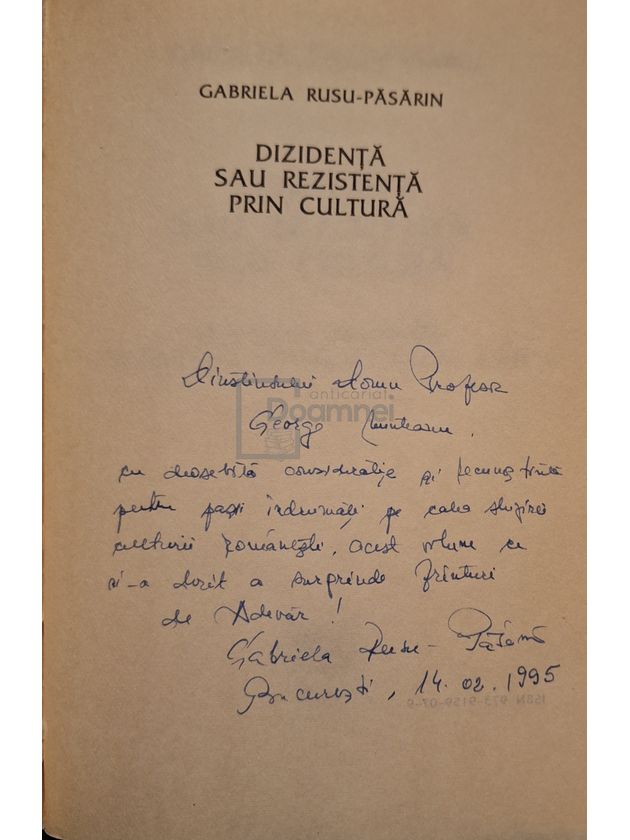 GABRIELA RUSU-PĂSĂRIN
DIZIDENȚĂ
SAU REZISTENȚĂ
PRIN CULTURĂ
Distinsului Domn Profesor
anticariat
Doamnei
George Munteanu,
cu deosebită considerație și recunoștință
pentru pașii îndrumați pe calea slujirii
culturii românești, acest volum ce
și-a dorit a surprinde frînturi
de Adevăr!
Gabriela Rusu-Păsărin
București, 14.02.1995
ISBN 973-9159-07-9